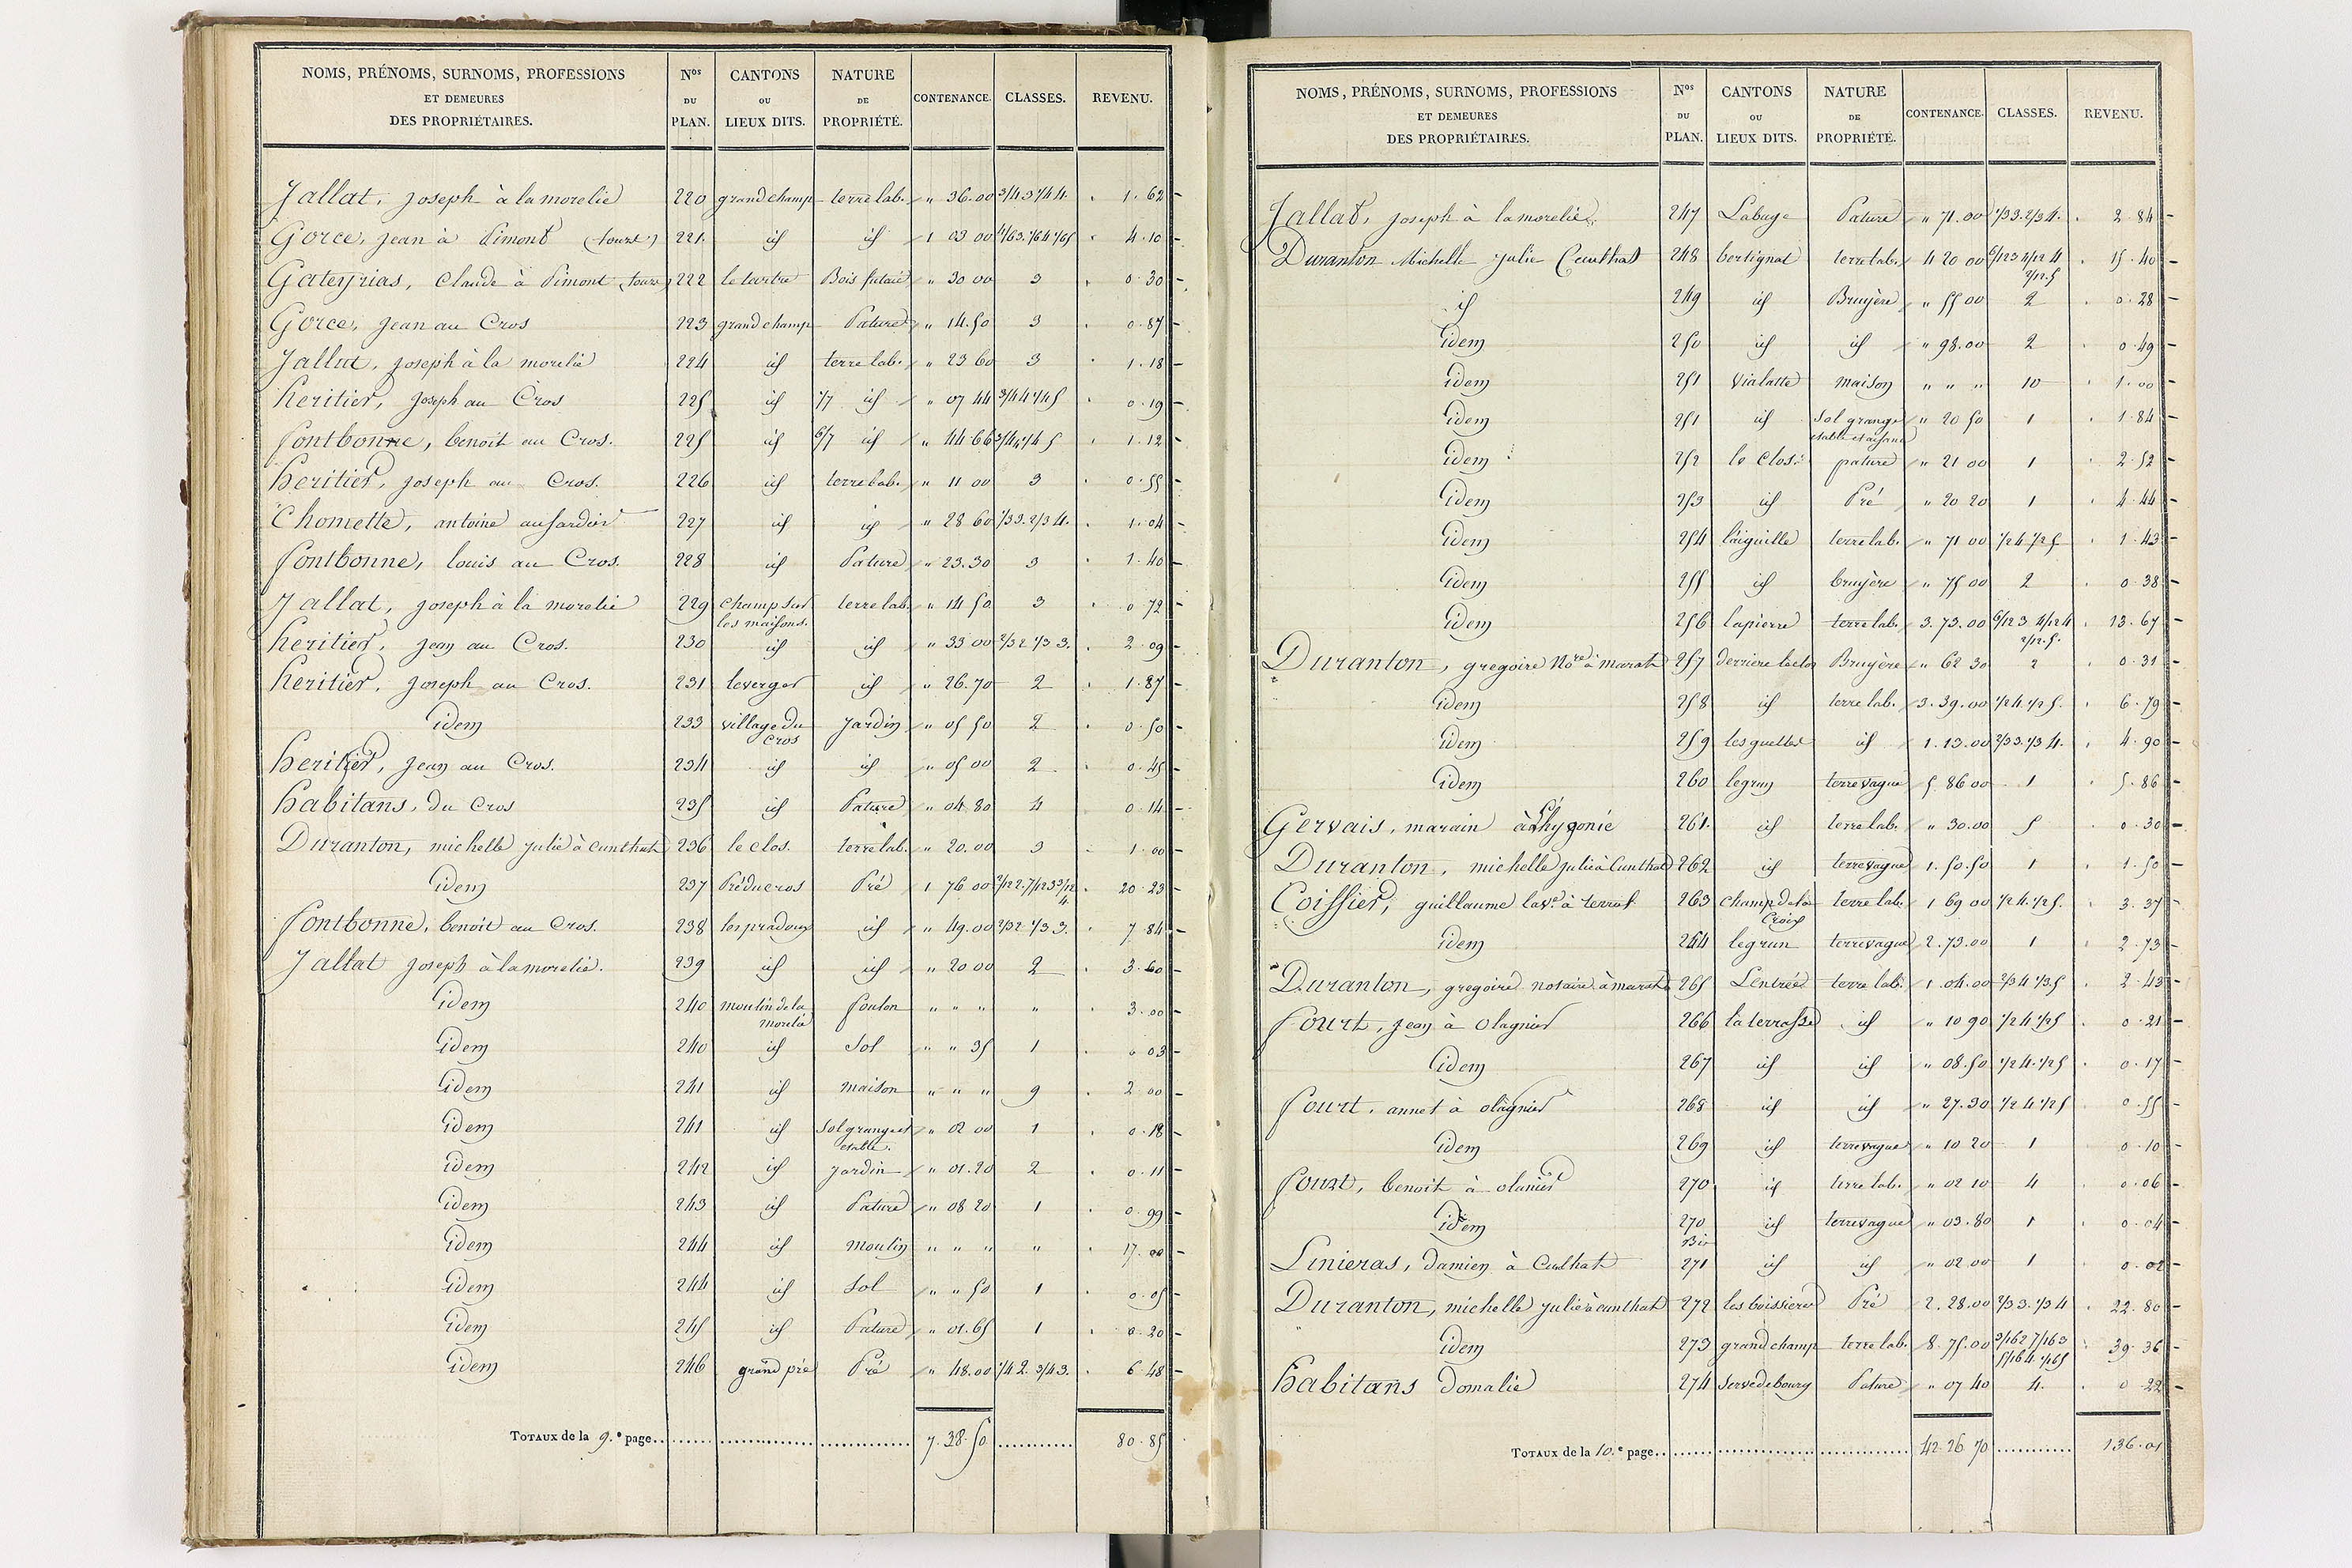 NOMS, PRÉNOMS, SURNOMS, PROFESSIONS ET DEMEURES DES PROPRIÉTAIRES. Nos DU PLAN. CANTONS OU LIEUX DITS. NATURE DE PROPRIÉTÉ. CONTENANCE. CLASSES. REVENU.
Jallat, joseph à la morelie 220 grand champ terre lab. " 36.00 3/4 3 1/4 4. 1.62
Gorce, jean à Pimont 221. id id 1 03 00 4.10
Gateyrias, Claude à Pimont 222 le tertre Bois futaie " 30 00 3 0.30
Gorce, jean au Cros 223 grand champ Pature " 14.50 3 0.87
Jallat, joseph à la morelie 224 id terre lab. " 23 60 3 1.18
heritier, joseph au Cros 225 id 1/7 id " 07 44 3/4 4 1/4 5 0.19
fontbonne, benoit au Cros. 225 id 6/7 id " 44 66 3/4 4 1/4 5 1.12
heritier, joseph au Cros. 226 id terre lab. " 11 00 3 0.55
Chomette, antoine 227 id id " 28 60 1/3 3. 2/3 4. 1.04
fontbonne, louis au Cros. 228 id Pature " 23.30 3 1.40
Jallat, joseph à la morelie 229 champ sur terre lab. " 14 50 3 0 72
les maisons.
heritier, jean au Cros. 230 id id " 33 00 2/3 2 1/3 3. 2.09
heritier, joseph au Cros. 231 le verger id " 26.70 2 1.87
idem 233 village du Jardin " 05 50 2 0.50
Cros
heritier, jean au Cros. 234 id id " 05 00 2 0.45
habitans, du Cros 235 id Pature " 04.80 4 0.14
Duranton, michelle julie à Cunlhat 236 le clos. terre lab. " 20.00 3 1.00
idem 237 Pré du cros Pré 1 76 00 2/12 2. 7/12 3 3/12 20.23
4
fontbonne, benoit au Cros. 238 les pradoux id " 49.00 2/3 2. 1/3 3. 7.84
Jallat joseph à la morelie. 239 id id " 20 00 2 3.60
idem 240 moulin de la foulon " " " " 3.00
morelie
idem 240 id Sol " " 35 1 0 03
idem 241 id maison " " " 9 2 00
idem 241 id Sol grange et " 02 00 1 0.18
étable.
idem 242 id jardin " 01.20 2 0.11
idem 243 id Pature " 08 20 1 0.99
idem 244 id moulin " " " " 17.00
idem 244 id Sol " " 50 1 0.05
idem 245 id Pature " 01.65 1 0.20
idem 246 grand pré Pré " 48.00 1/4 2. 3/4 3. 6.48
TOTAUX de la 9.e page 7.38.50 80.85
NOMS, PRÉNOMS, SURNOMS, PROFESSIONS ET DEMEURES DES PROPRIÉTAIRES. Nos DU PLAN. CANTONS OU LIEUX DITS. NATURE DE PROPRIÉTÉ. CONTENANCE. CLASSES. REVENU.
Jallat, joseph à la morelie. 247 Labuge Pature " 71.00 1/3 3. 2/3 4. 2.84
Duranton Michelle julie Cunlhat 248 bertignat terre lab. 4 20 00 6/12 3 4/12 4 15.40
2/12.5
id 249 id Bruyère " 55 00 2 0.28
idem 250 id id " 98.00 2 0.49
idem 251 Vialatte maison " " " 10 1.00
idem 251 id Sol grange " 20 50 1 1.84
idem 252 le Clos. pature " 21 00 1 2.52
idem 253 id Pré " 20 20 1 4.44
idem 254 l'aiguille terre lab. " 71 00 1/2 4. 1/2 5 1.43
idem 255 id bruyère " 75 00 2 0.38
idem 256 lapierre terre lab. 3.73.00 6/12 3 4/12 4 13.67
2/12.5.
Duranton, gregoire Nore à marat 257 derriere leclos Bruyère " 62 30 2 0.31
idem 258 id terre lab. 3.39.00 1/2 4. 1/2 5. 6.79
idem 259 id 1.13.00 2/3 3. 1/3 4. 4.90
idem 260 legrun terre vague 5 86 00 1 5.86
Gervais, marain 261. id terre lab. " 30.00 5 0.30
Duranton, michelle julie à Cunlhat 262 id terre vague 1.50.50 1 1.50
Coissier, guillaume la ve. à 263 champ de la terre lab. 1 69 00 1/2 4. 1/2 5. 3.37
Croix
idem 264 legrun terre vague 2.73.00 1 2.73
Duranton, gregoire notaire à marat 265 L'entrée terre lab. 1.04.00 2/3 4 1/3.5 2.43
fourt, jean à Olagnier 266 la terrasse id " 10 90 1/2 4. 1/2 5 0.21
idem 267 id id " 08.50 1/2 4. 1/2 5 0.17
fourt, annet à olagnier 268 id id " 27.30 1/2 4 1/2 5 0.55
idem 269 id terre vague " 10 20 1 0.10
fourt, benoit à olanier 270 id terre lab. " 02 10 4 0.06
idem 270 id terre vague " 03.80 1 0.04
Bis
Linieras, damien à Cunlhat 271 id id " 02.00 1 0.02
Duranton, michelle julie à cunlhat 272 les boissieres Pré 2.28.00 2/3 3. 1/3 4 22.80
idem 273 grand champ terre lab. 8.75.00 3/16 2 7/16 3 39.36
5/16 4. 1/16 5
habitans Domalie 274 Pature " 07 40 4. 0 22
TOTAUX de la 10.e page 42.26 70 136.01